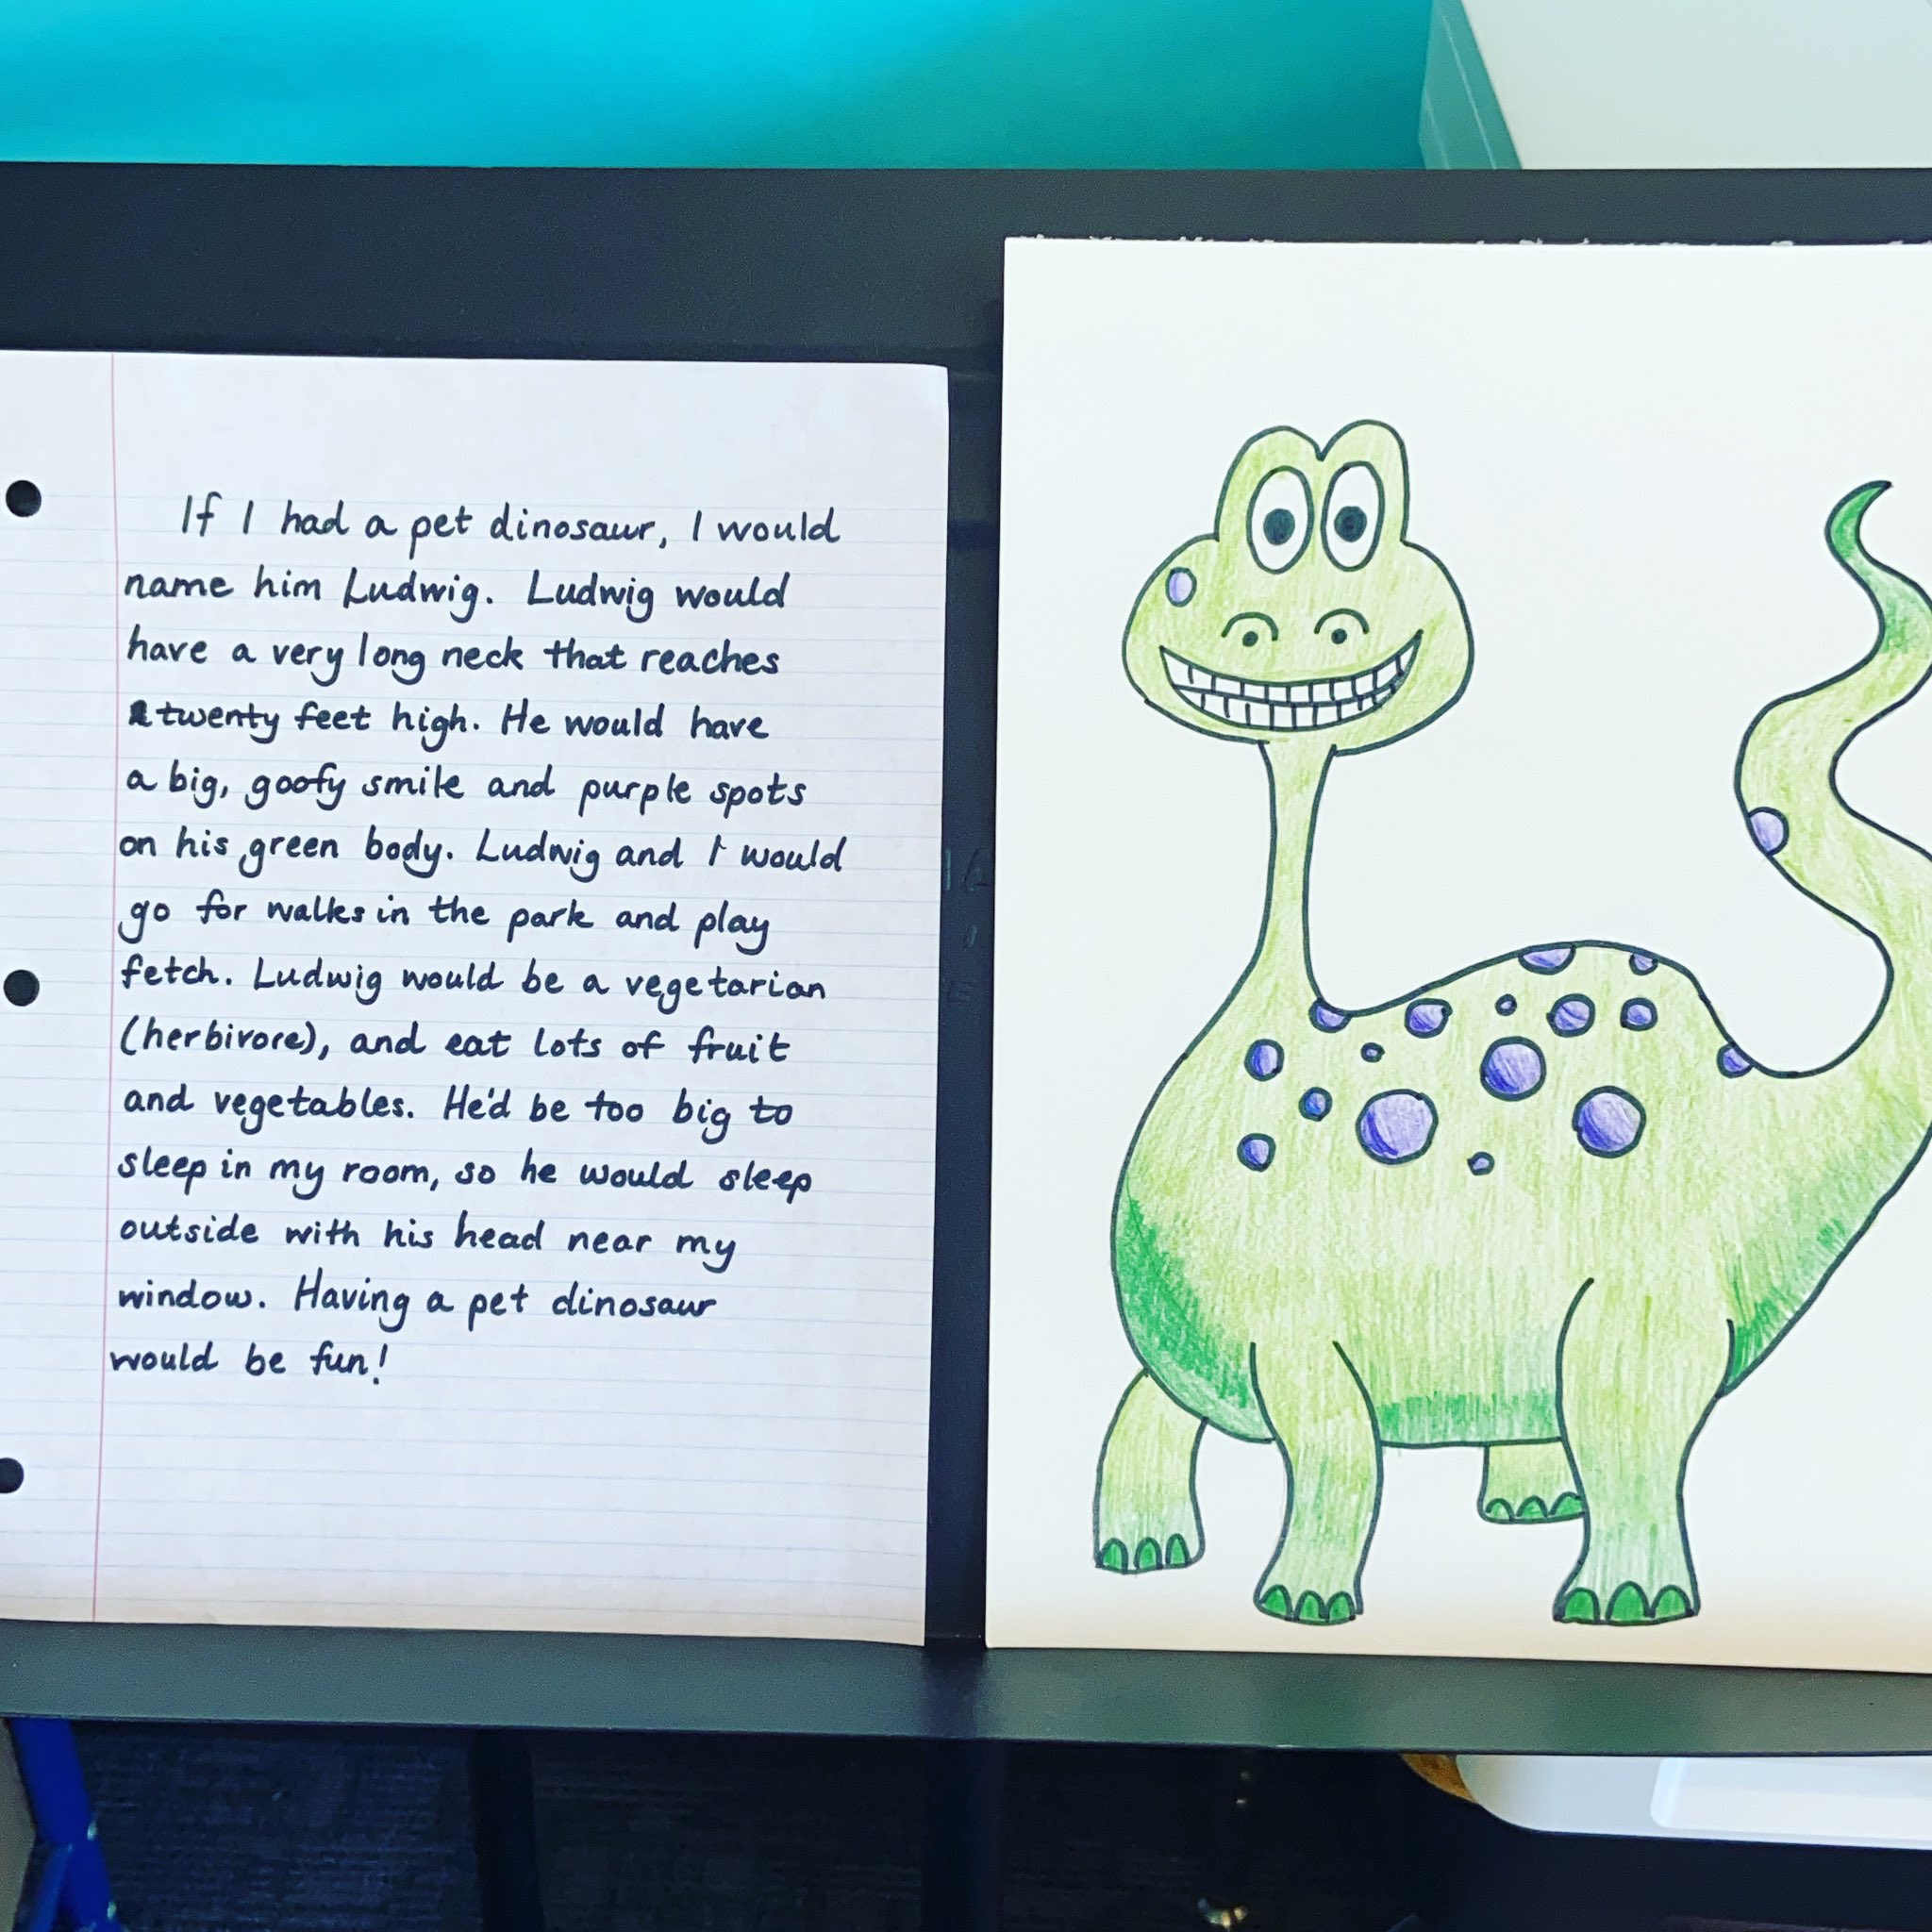 If I had a pet dinosaur, I would
name him Ludwig. Ludwig would
have a very long neck that reaches
twenty feet high. He would have
a big, goofy smile and purple spots
on his green body. Ludwig and I would
go for walks in the park and play
fetch. Ludwig would be a vegetarian
(herbivore), and eat lots of fruit
and vegetables. He'd be too big to
sleep in my room, so he would sleep
outside with his head near my
window. Having a pet dinosaur
would be fun!